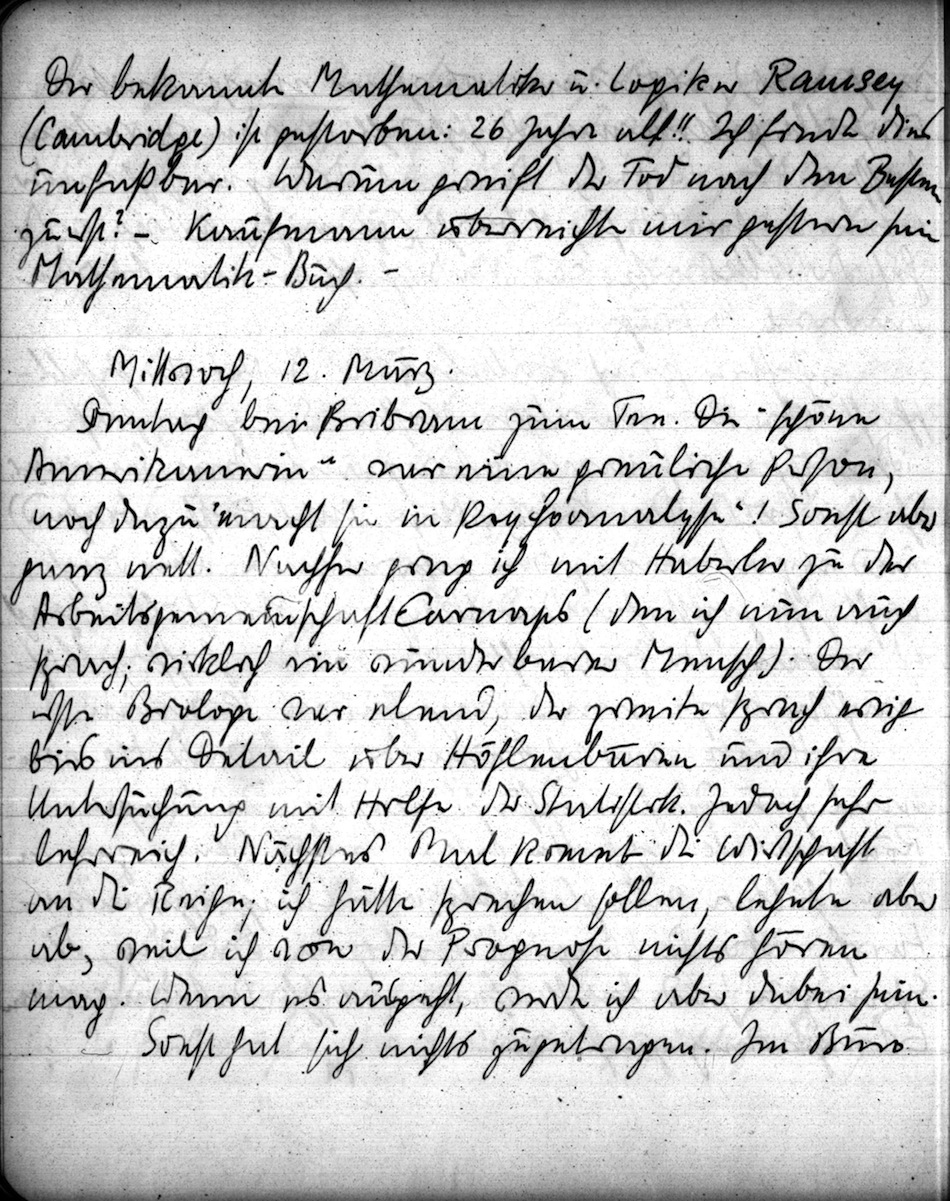 Der bekannte Mathematiker u. Logiker Ramsey
(Cambridge) ist gestorben: 26 Jahre alt!! Ich finde dies
unfaßbar. Warum greift der Tod nach den Besten
zuerst? – Kaufmann überreichte mir gestern sein
Mathematik-Buch. –
Mittwoch, 12. März.
bei Pribram zum Tee. Die "schöne
Amerikanerin" war eine greuliche Person,
noch dazu "macht sie in Psychoanalyse"! Sonst aber
ganz nett. Nachher ging ich mit Haberler zu der
Arbeitsgemeinschaft Carnaps (den ich nun auch
sprach; wirklich ein wunderbarer Mensch). Der
erste Biologe war elend, der zweite sprach ewig
bis ins Detail über Höhlenbären und ihre
Untersuchung mit Hilfe der Statistik. Jedoch sehr
lehrreich. Nächstes Mal kommt die Wirtschaft
an die Reihe; ich hätte sprechen sollen, lehnte aber
ab, weil ich von der Prognose nichts hören
mag. Wenn es ausgeht, werde ich aber dabei sein.
Sonst hat sich nichts zugetragen. Im Büro